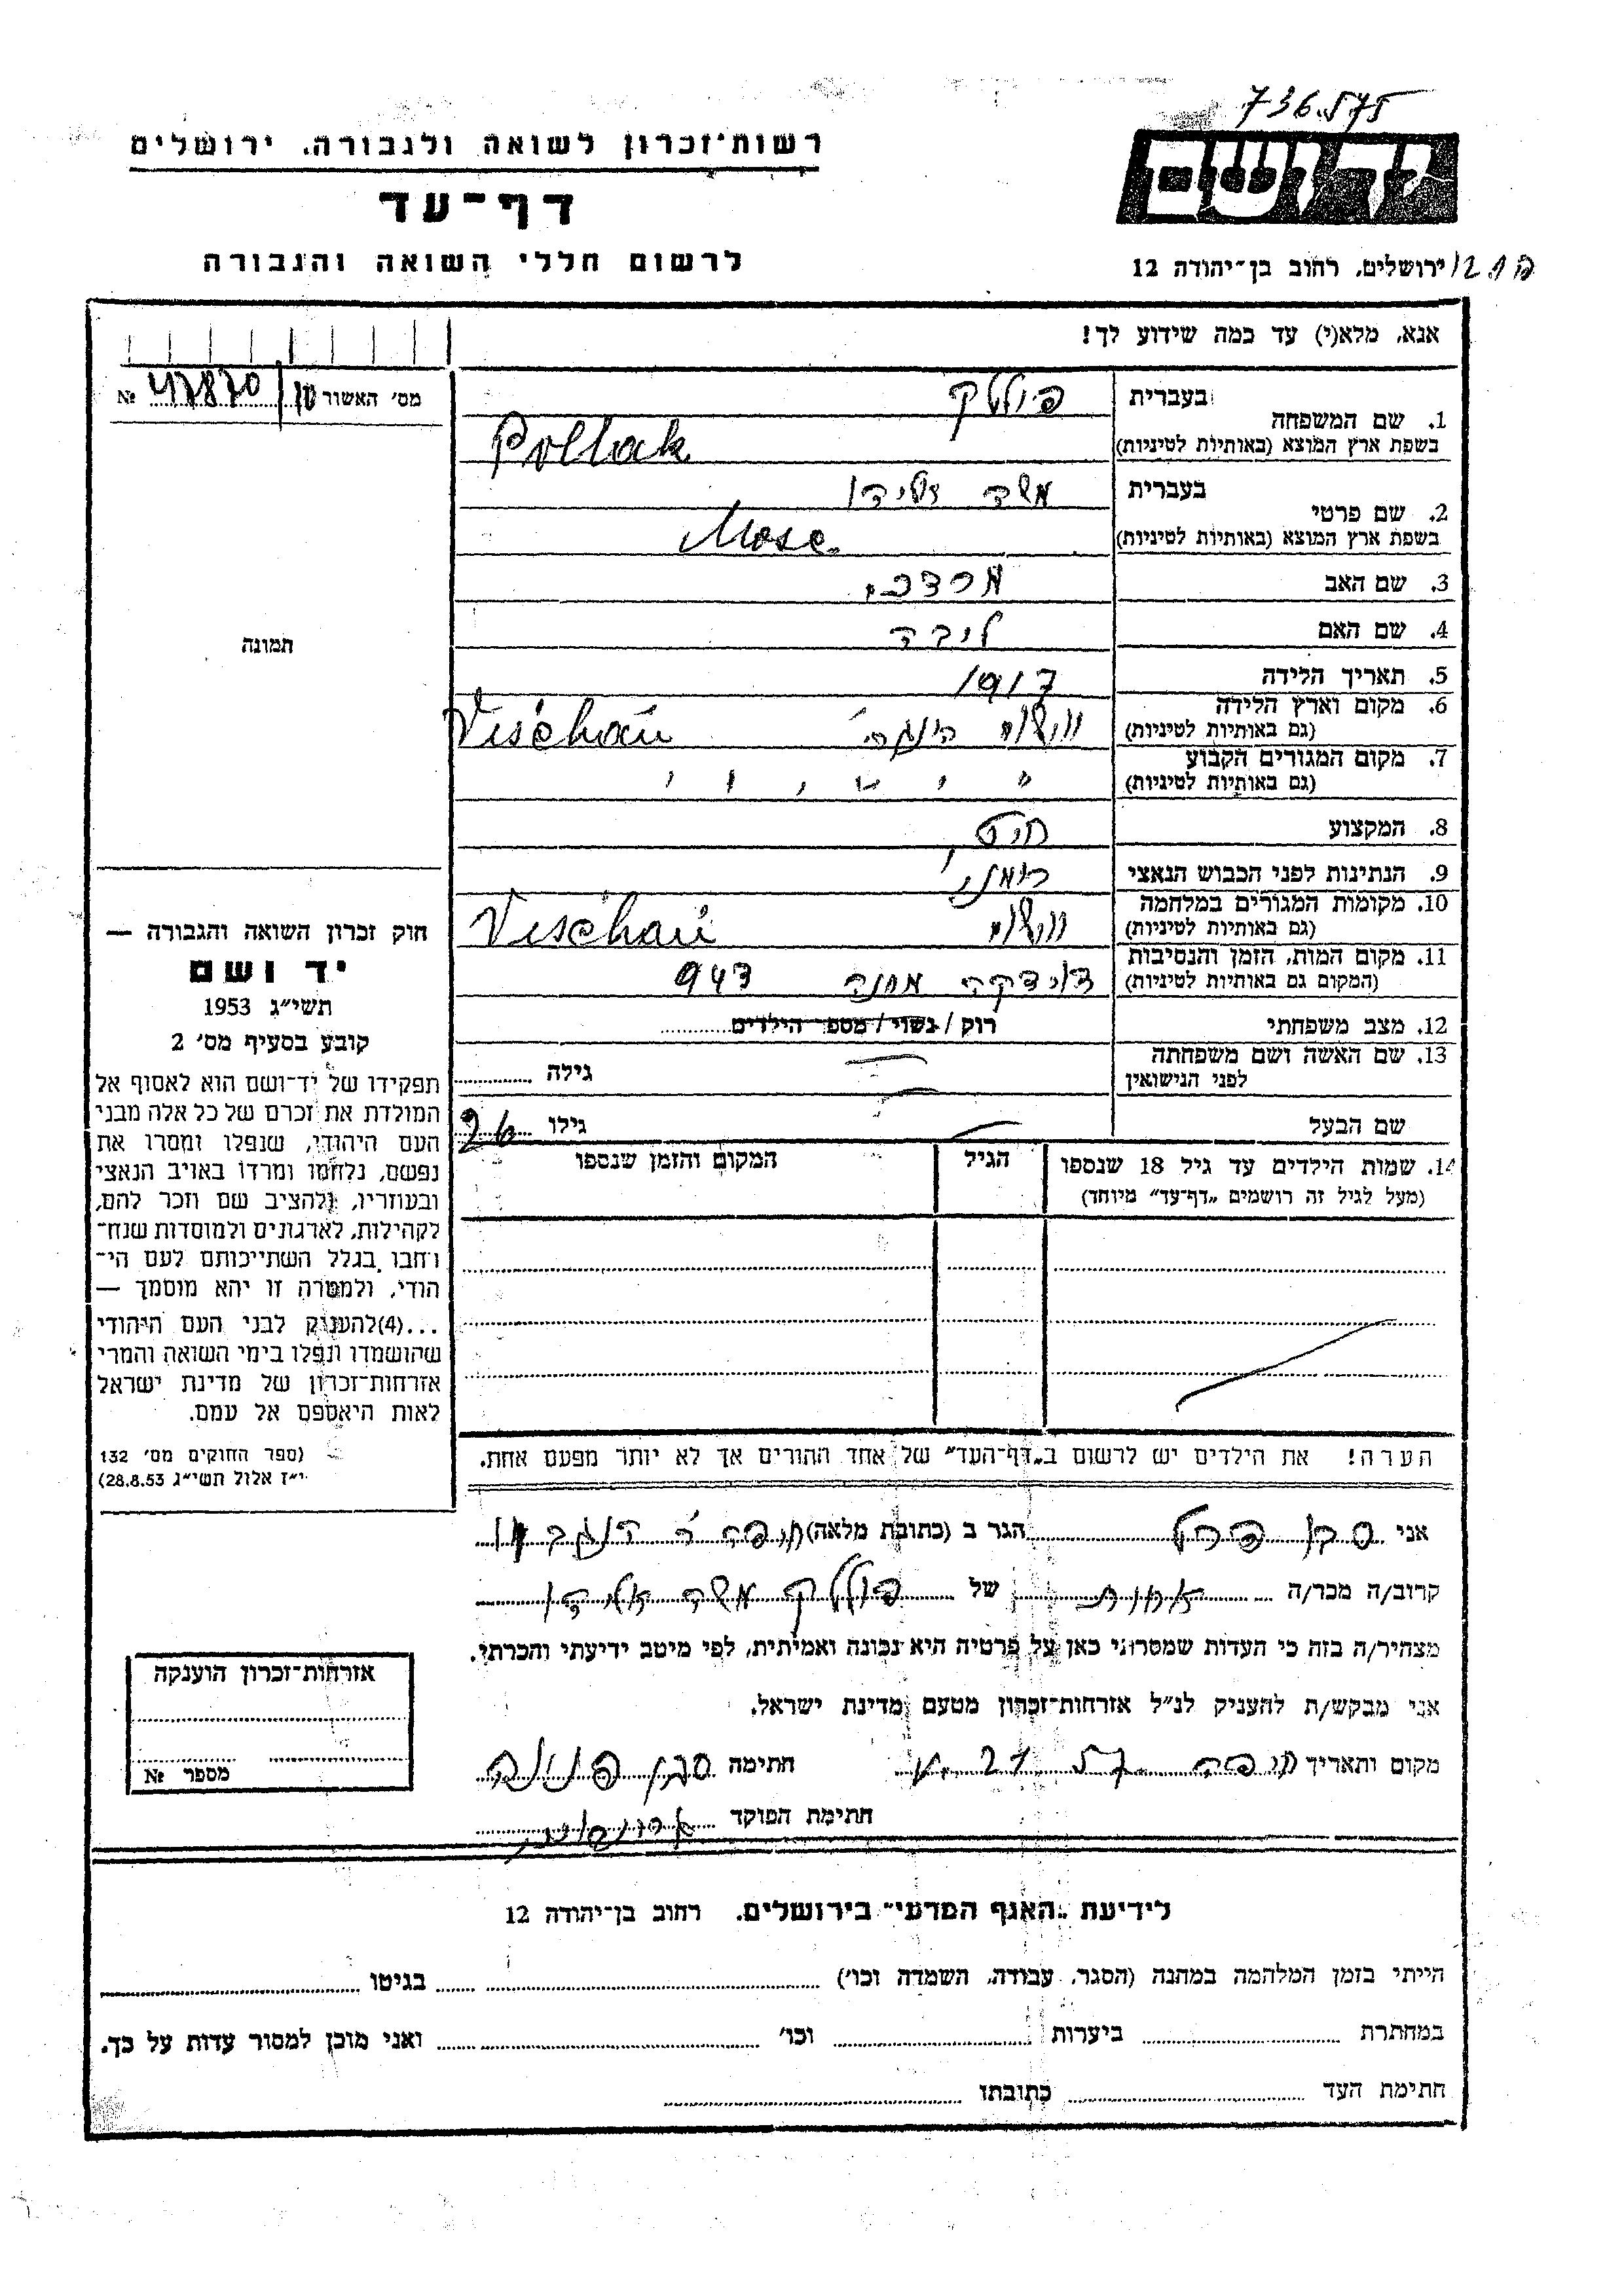 736.575
רשות־זכרון לשואה ולגבורה, ירושלים
יד ושם
דף־עד
לרשום חללי השואה והגבורה
ירושלים, רחוב בן־יהודה 12
אנא, מלא(י) עד כמה שידוע לך!
מס׳ האשור 47870 №
1. שם המשפחה בעברית פולק
בשפת ארץ המוצא (באותיות לטיניות) Pollack
2. שם פרטי בעברית משה
בשפת ארץ המוצא (באותיות לטיניות) Mose
3. שם האב מרדכי
4. שם האם ליבה
5. תאריך הלידה 1917
6. מקום וארץ הלידה (גם באותיות לטיניות) Vischau
7. מקום המגורים הקבוע
(גם באותיות לטיניות) " " " " " "
8. המקצוע חיט
9. הנתינות לפני הכבוש הנאצי רומני
10. מקומות המגורים במלחמה
(גם באותיות לטיניות) Vischau
11. מקום המות, הזמן והנסיבות
(המקום גם באותיות לטיניות) מחנה 943
12. מצב משפחתי רוק / נשוי / מספר הילדים
13. שם האשה ושם משפחתה
לפני הנישואין — גילה
שם הבעל — גילו 26
14. שמות הילדים עד גיל 18 שנספו הגיל המקום והזמן שנספו
(מעל לגיל זה רושמים „דף־עד" מיוחד)
הערה! את הילדים יש לרשום ב„דף־העד" של אחד ההורים אך לא יותר מפעם אחת.
תמונה
חוק זכרון השואה והגבורה —
יד ושם
תשי״ג 1953
קובע בסעיף מס׳ 2
תפקידו של יד־ושם הוא לאסוף אל
המולדת את זכרם של כל אלה מבני
העם היהודי, שנפלו ומסרו את
נפשם, נלחמו ומרדו באויב הנאצי
ובעוזריו, ולהציב שם וזכר להם,
לקהילות, לארגונים ולמוסדות שנח־
רחבו בגלל השתייכותם לעם הי־
הודי, ולמטרה זו יהא מוסמך —
...(4) להעניק לבני העם היהודי
שהושמדו ונפלו בימי השואה והמרי
אזרחות־זכרון של מדינת ישראל
לאות היאספם אל עמם.
(ספר החוקים מס׳ 132
י״ז אלול תשי״ג 28.8.53)
אני הגר ב (כתובת מלאה) חיפה
קרוב/ה מכר/ה אחות של פולק משה
מצהיר/ה בזה כי העדות שמסרתי כאן על פרטיה היא נכונה ואמיתית, לפי מיטב ידיעתי והכרתי.
אני מבקש/ת להעניק לנ״ל אזרחות־זכרון מטעם מדינת ישראל.
מקום ותאריך חיפה חתימה
חתימת הפוקד
אזרחות־זכרון הוענקה
מספר №
לידיעת „האגף המדעי" בירושלים, רחוב בן־יהודה 12
הייתי בזמן המלחמה במחנה (הסגר, עבודה, השמדה וכו׳) בגיטו
במחתרת ביערות וכו׳ ואני מוכן למסור עדות על כך.
חתימת העד כתובתו